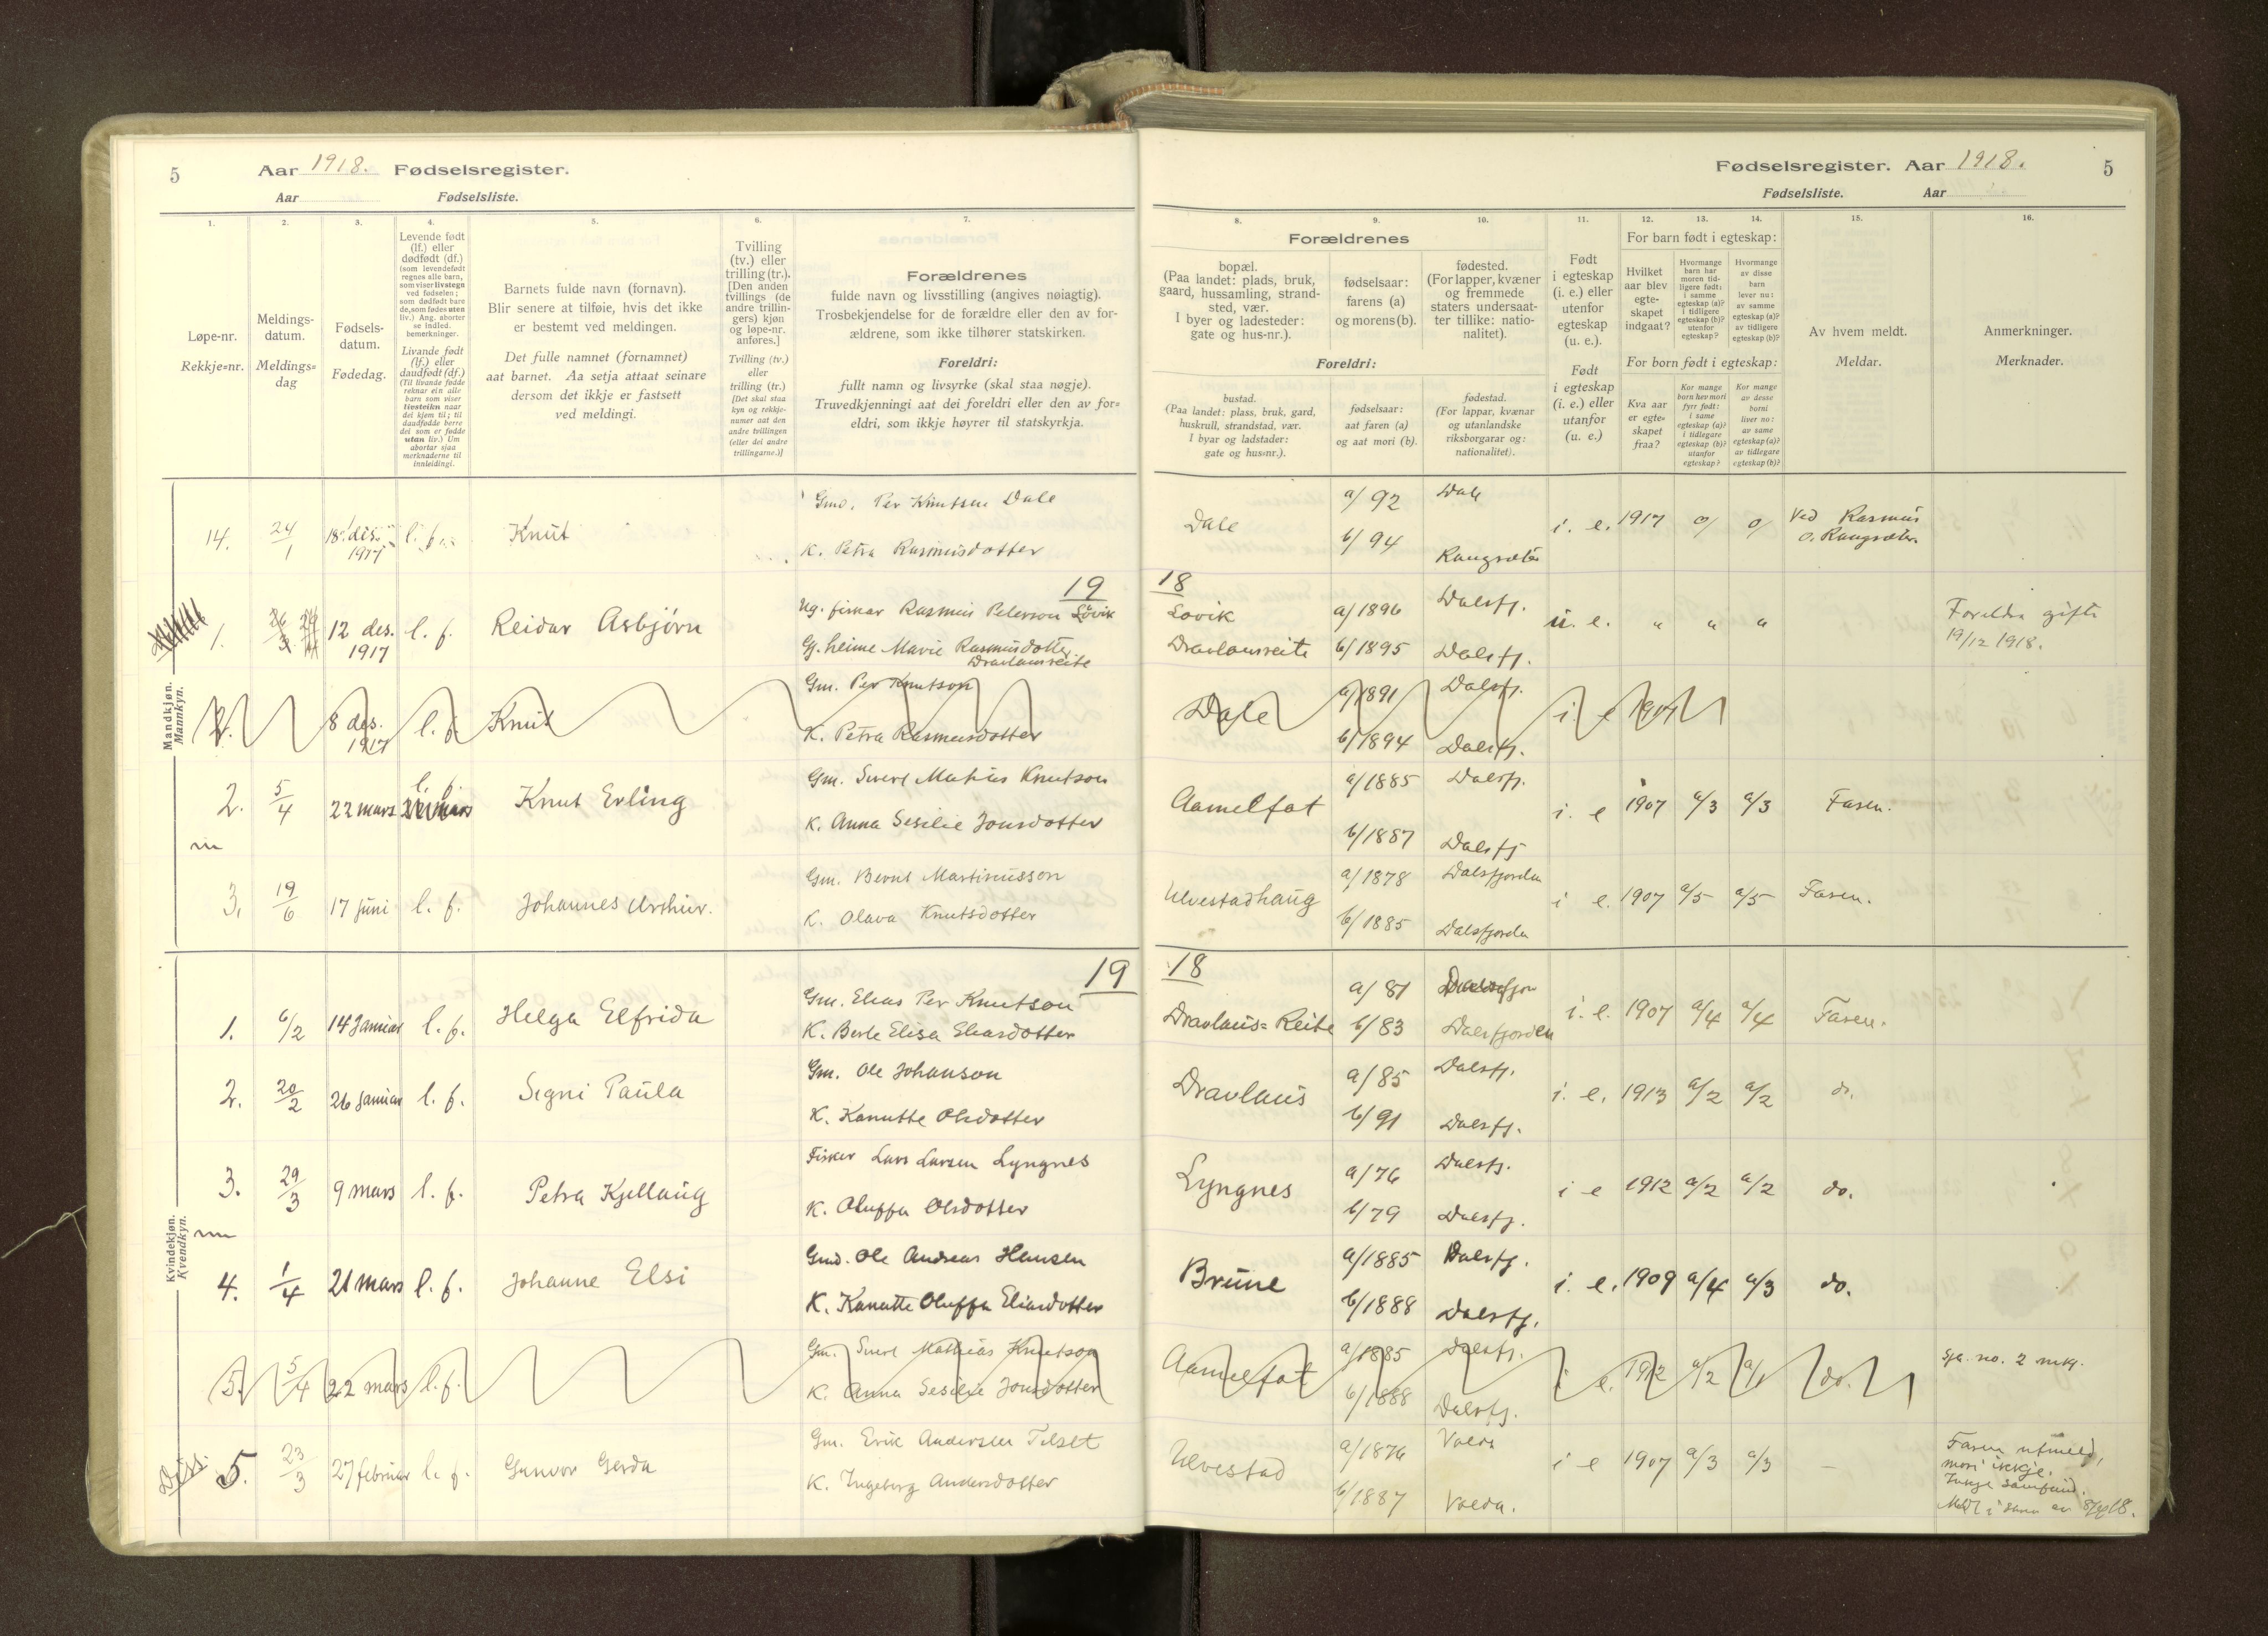 5 Aar 1918. Fødselsregister.
Aar Fødselsliste.
Fødselsregister. Aar 1918. 5
Fødselsliste. Aar
1. 2. 3. 4. 5. 6. 7.
8. 9. 10. 11. 12. 13. 14. 15. 16.
Løpe-nr.
Rekkje=nr.
Meldings-
datum.
Meldings=
dag
Fødsels-
datum.
Fødedag.
Levende født
(lf.) eller
dødfødt (df.)
(som levendefødt
regnes alle barn,
som viser livstegn
ved fødselen;
som dødfødt bare
de, som fødes uten
liv.) Ang. aborter
se indled.
bemerkninger.
Livande født
(lf.) eller
daudfødt (df.)
(Til livande fødde
reknar ein alle
barn som viser
livsteikn naar
dei kjem til; til
daudfødde berre
dei som er fødde
utan liv.) Um
abortar sjaa
merknaderne til
innleidingi.
Barnets fulde navn (fornavn).
Blir senere at tilføie, hvis det ikke
er bestemt ved meldingen.
Det fulle namnet (fornamnet)
aat barnet. Aa setja attaat seinare
dersom det ikkje er fastsett
ved meldingi.
Tvilling
(tv.) eller
trilling (tr.).
[Den anden
tvillings (de
andre trillin-
gers) kjøn
og løpe-nr.
anføres.]
Tvilling (tv.)
eller
trilling (tr.)
[Det skal staa
kyn og rekkje-
numer aat den
andre tvillingen
(eller dei andre
trillingarne.)]
Forældrenes
fulde navn og livsstilling (angives nøiagtig).
Trosbekjendelse for de forældre eller den av for-
ældrene, som ikke tilhører statskirken.
Foreldri:
fullt namn og livsyrke (skal staa nøgje).
Truvedkjenningi aat dei foreldri eller den av for=
eldri, som ikkje høyrer til statskyrkja.
Forældrenes
bopæl.
(Paa landet: plads, bruk,
gaard, hussamling, strand-
sted, vær.
I byer og ladesteder:
gate og hus-nr.).
fødselsaar:
farens (a)
og morens (b).
fødested.
(For lapper, kvæner
og fremmede
staters undersaat-
ter tillike: natio-
nalitet).
Foreldri:
bustad.
(Paa landet: plass, bruk, gard,
huskrull, strandstad, vær.
I byar og ladstader:
gate og hus=nr.).
fødselsaar:
aat faren (a)
og aat mori (b).
fødestad.
(For lappar, kvænar
og utanlandske
riksborgarar og:
nationalitet).
Født
i egteskap
(i. e.) eller
utenfor
egteskap
(u. e.).
Født
i egteskap
(i. e.) eller
utanfor
(u. e.)
For barn født i egteskap:
Hvilket
aar blev
egte-
skapet
indgaat?
Hvormange
barn har
moren tid-
ligere født:
i samme
egteskap (a)?
i tidligere
egteskap (b)?
utenfor
egteskap?
Hvormange
av disse
barn
lever nu:
av samme
egteskap (a)?
av tidligere
egteskap (b)?
For born født i egteskap:
Kva aar
er egte-
skapet
fraa?
Kor mange
born hev mori
fyrr født:
i same
egteskap (a)?
i tidlegare
egteskap (b)?
utanfor
egteskap?
Kor mange
av desse
borni
liver no:
av same
egteskap (a)?
av tidlegare
egteskap (b)?
Av hvem meldt.
Meldar.
Anmerkninger.
Merknader.
Mandkjøn.
Mannkyn.
14. 24/1 18. des. 1917 l. f. Knut
Gmd. Per Knutsen Dale
K. Petra Rasmusdotter
Dale a/ 92 Dale
b/ 94 Rangsæter
i. e. 1917 0/ 0/ Ved Rasmus
O. Rangsæter.
19 18
1. 12 des. 1917 l. f. Reidar Asbjørn
Ug. fiskar Rasmus Peterson Løvik
G. heime Marie Rasmusdotter
Dravlausreite
Løvik a/1896 Dalsfj.
Dravlausreite b/1895 Dalsfj.
u. e. " " "
Foreldra gifte
19/12 1918.
2. 8 des. 1917 l. f. Knut
Gm. Per Knutson
K. Petra Rasmusdotter
Dale a/1891 Dalsfj.
b/1894 Dalsfj.
i e 1917
2. 5/4 22 mars l. f. Knut Erling
Gm. Sivert Matias Knutson
K. Anna Sesilie Jonsdotter
Aamelfot a/1885 Dalsfj.
b/1887 Dalsfj
i. e 1907 a/3 a/3 Faren.
m
3. 19/6 17 juni l. f. Johannes Arthur.
Gm. Bernt Martinusson
K. Olava Knutsdotter
Ulvestadhaug a/1878 Dalsfjorden
b/1885 Dalsfjorden
i e. 1907 a/5 a/5 Faren.
Kvindekjøn.
Kvendkyn.
19 18
1. 6/2 14 januar l. f. Helga Elfrida
Gm. Elias Per Knutson
K. Berte Elisa Eliasdotter
Dravlaus=Reite a/ 81
b/83 Dalsfjorden
i. e. 1907 a/4 a/4 Faren.
2. 20/2 26 januar l. f. Signi Paula
Gm. Ole Johanson
K. Kanutte Olsdotter
Dravlaus a/85 Dalsfj.
b/91 Dalsfj.
i. e. 1913 a/2 a/2 do.
3. 29/3 9 mars l. f. Petra Kjellaug
Fisker Lars Larsen Lyngnes
K. Oluffa Olsdotter
Lyngnes a/76 Dalsfj.
b/79 Dalsfj.
i e 1912 a/2 a/2 do.
m
4. 1/4 21 mars l. f. Johanne Elsi
Gmd. Ole Andreas Hansen
K. Kanutte Oluffa Eliasdotter
Brune a/1885 Dalsfj.
b/1888 Dalsfj.
i. e. 1909 a/4 a/3 do.
5. 5/4 22 mars l. f.
Gm. Sivert Mathias Knutson
K. Anna Sesilie Jonsdotter
Aamelfot a/1885 Dalsfj.
b/1888 Dalsfj.
i e. 1912 a/2 a/1 do.
sja. no. 2 mk.
Diss. 5. 23/3 27 februar l. f. Gunvor Gerda
Gm. Erik Andersen Tilset
K. Ingeborg Andersdotter
Ulvestad a/1876 Volda
b/1887 Volda.
i e 1907 a/3 a/3 —
Faren utmeld,
mori ikkje.
Inkje samfund.